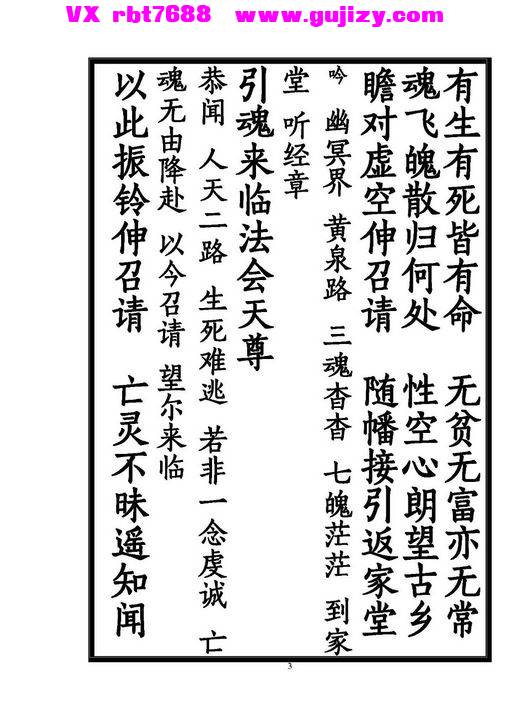 VX rbt7688 www.gujizy.com
有生有死皆有命 无贫无富亦无常
魂飞魄散归何处 性空心朗望古乡
瞻对虚空伸召请 随幡接引返家堂
吟 幽冥界 黄泉路 三魂杳杳 七魄茫茫 到家
堂 听经章
引魂来临法会天尊
恭闻 人天二路 生死难逃 若非一念虔诚 亡
魂无由降赴 以今召请 望尔来临
以此振铃伸召请 亡灵不昧遥知闻
3